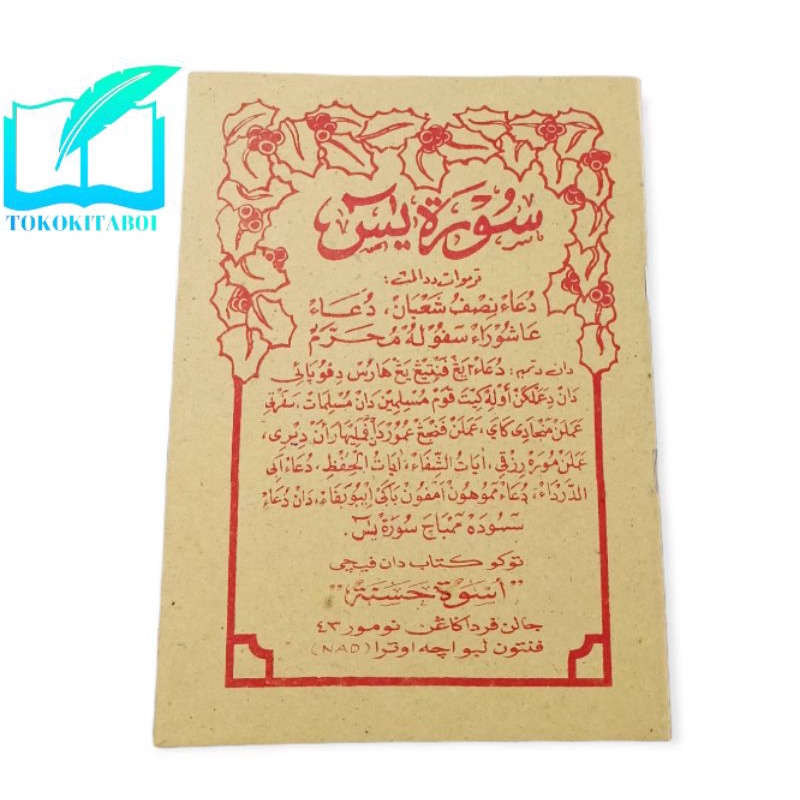 TOKOKITABOI
سورة يس
ترموات ددالمڽ:
دعاء نصف شعبان، دعاء
عاشوراء سفوله محرم
دان دتمبه: دعاء٢ يڠ فنتيڠ يڠ هاروس دفوپائي
دان دعملكن أوله كيت قوم مسلمين دان مسلمات، سفرتي
عملن منجادي كاي، عملن فنجڠ عمور دان فليهاران ديري،
عملن موره رزقي، ايات الشفاء، ايات الحفظ، دعاء ابي
الدرداء، دعاء موهون امفون باكي ايبو بفاء، دان دعاء
سسوده ممباچ سورة يس.
توكو كتاب دان فيچي
"أسوة حسنة"
جالن فرداكاڠن نومور ٤٣
فنتون لبو اچه اوترا (NAD)